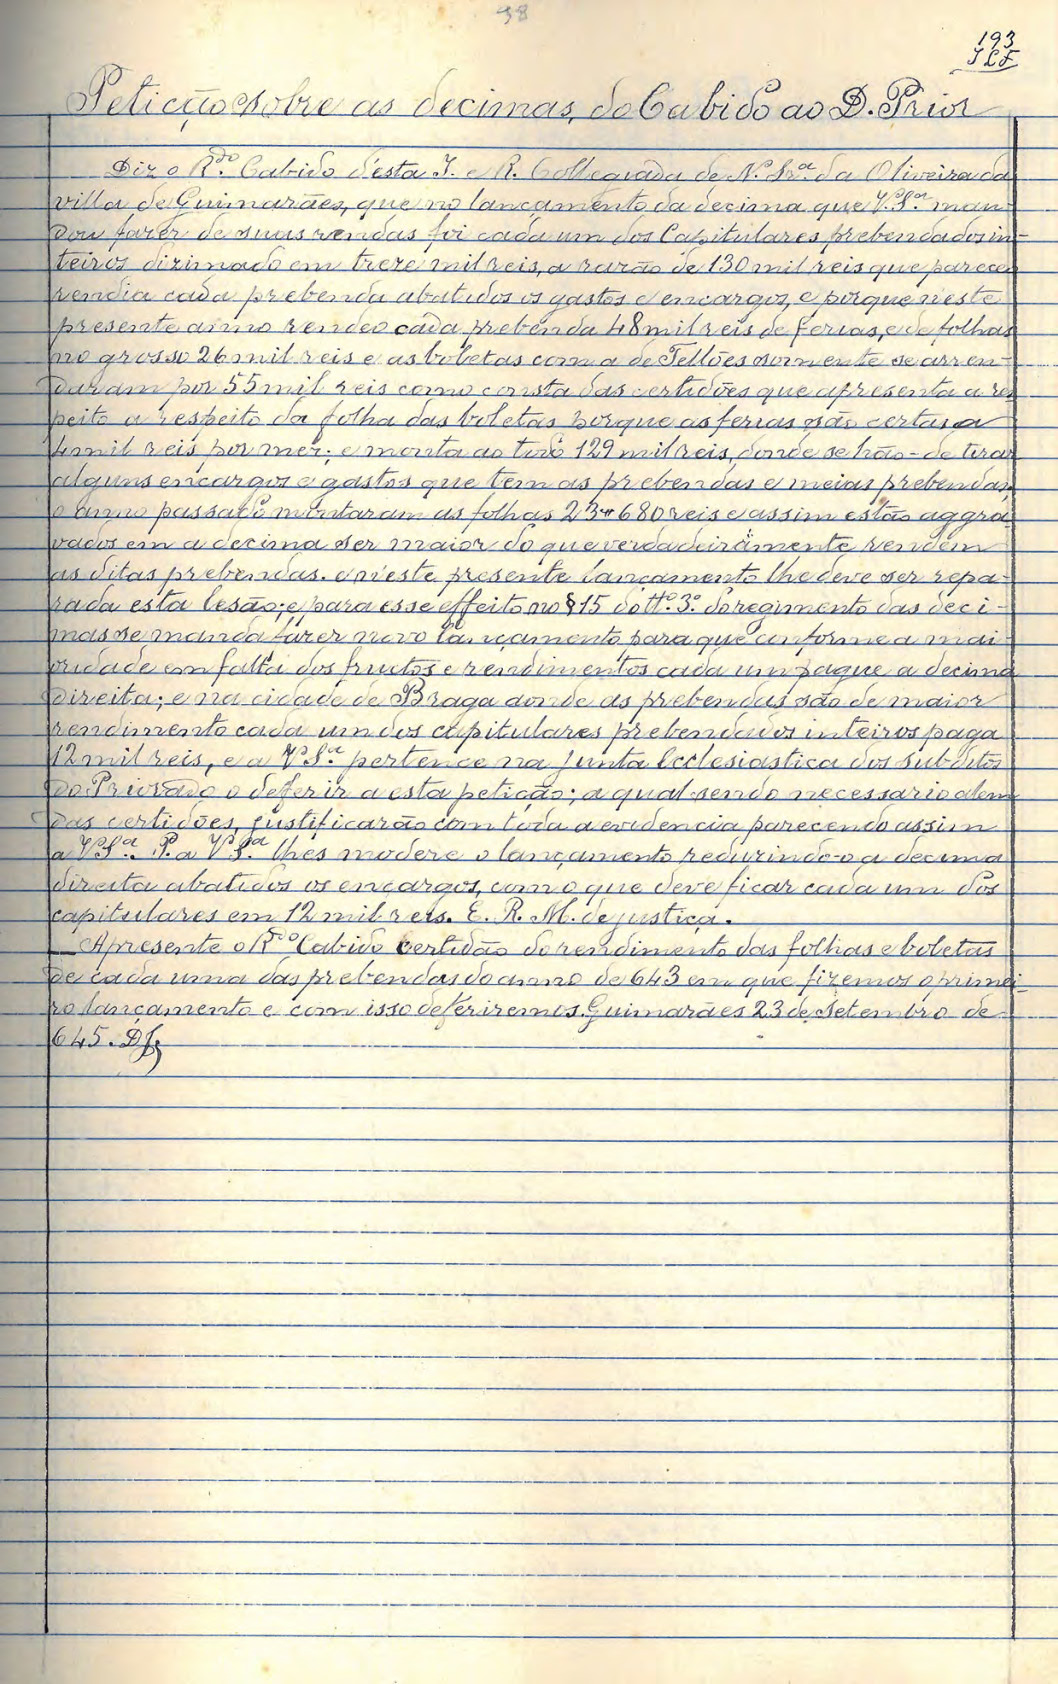 98
193
J L F
Petição sobre as decimas, do Cabido ao D. Prior
Diz o R.do Cabido d'esta I. e R. Collegiada de N. Sr.a da Oliveira da
villa de Guimarães, que no lançamento da decima que V.S.a man-
dou fazer de suas rendas foi cada um dos Capitulares prebendados in-
teiros dizimado em treze mil reis, a razão de 130 mil reis que parece
rendia cada prebenda abatidos os gastos e encargos, e porque n'este
presente anno rendeo cada prebenda 48 mil reis de ferias, e de folhas
no grosso 26 mil reis e as boletas com a de Tellões somente se arren-
daram por 55 mil reis como consta das certidões que apresenta a res
peito a respeito da folha das boletas porque as ferias são certas a
4 mil reis por mez; e monta ao todo 129 mil reis, donde se hão-de tirar
alguns encargos e gastos que tem as prebendas e meias prebendas,
o anno passado montaram as folhas 23#680 reis e assim estão aggra-
vados em a decima ser maior do que verdadeiramente rendem
as ditas prebendas. e n'este presente lançamento lhe deve ser repa-
rada esta lesão; e para esse effeito no § 15 do tt.o 3.o do regimento das deci-
mas se manda fazer novo lançamento para que conforme a mai-
oridade em falta dos fructos e rendimentos cada um pague a decima
direita; e na cidade de Braga aonde as prebendas são de maior
rendimento cada um dos capitulares prebendados inteiros paga
12 mil reis, e a V.S.a pertence na Junta Ecclesiastica dos subditos
do Priorado o deferir a esta petição; a qual sendo necessario alem
das certidões, justificarão com toda a evidencia parecendo assim
a V.S.a. P. a V.S.a lhes modere o lançamento reduzindo-o a decima
direita abatidos os encargos, com o que deve ficar cada um dos
capitulares em 12 mil reis. E. R. M. de justiça.
— Apresente o R.do Cabido certidão do rendimento das folhas e boletas
de cada uma das prebendas do anno de 643 em que fizemos o primei-
ro lançamento e com isso deferiremos. Guimarães 23 de Setembro de
645. D.